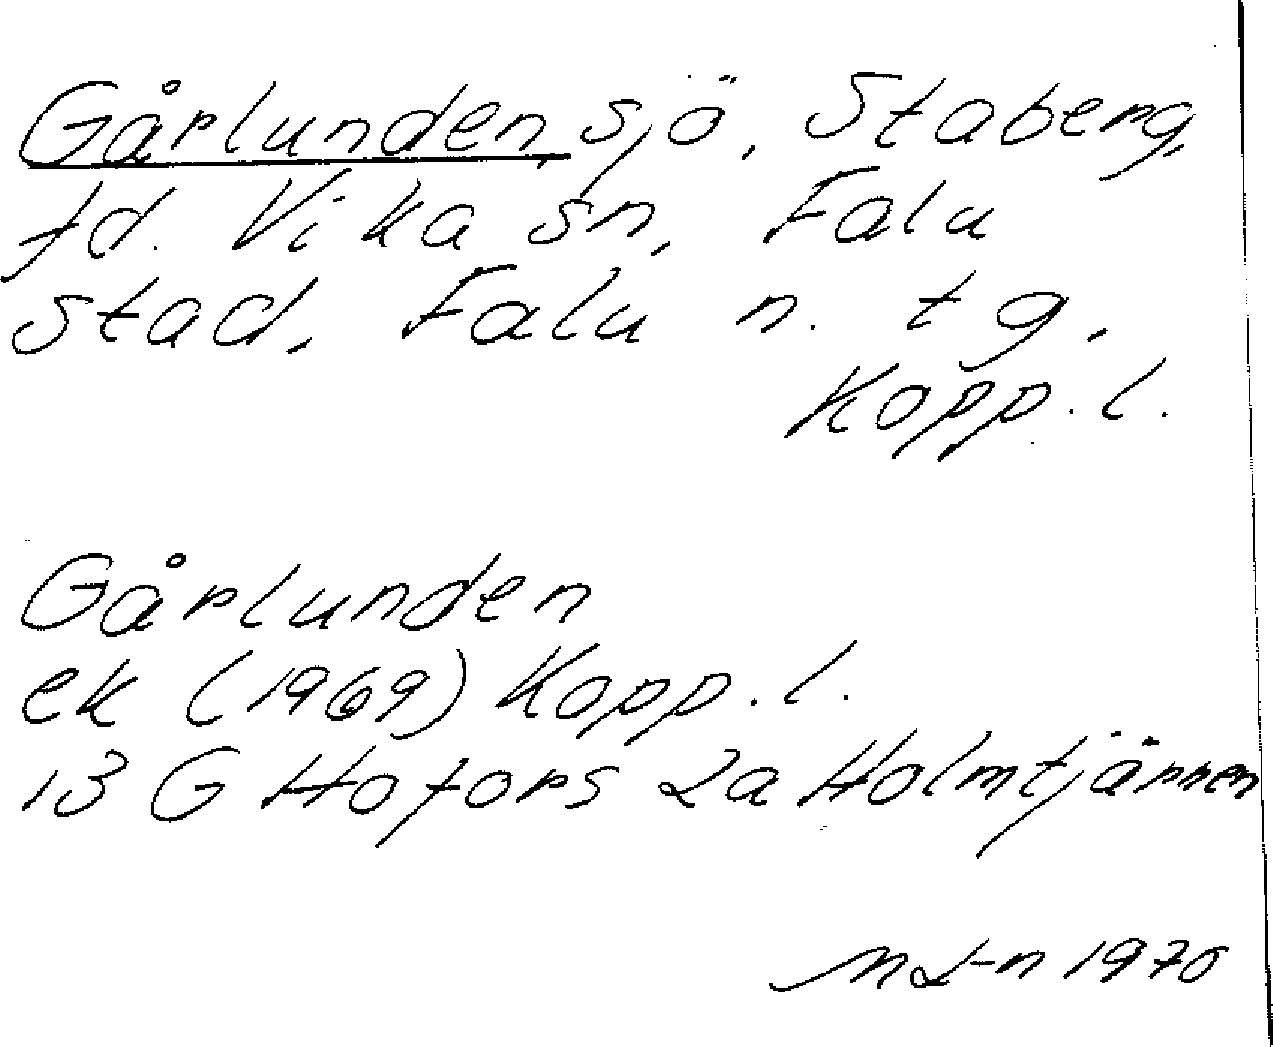 Gårlunden, sjö, Staberg,
fd. Vika sn, Falu
stad, Falu n. tg,
Kopp. l.
Gårlunden
ek (1969) Kopp. l.
13 G Hofors 2a Holmtjärnen
1970